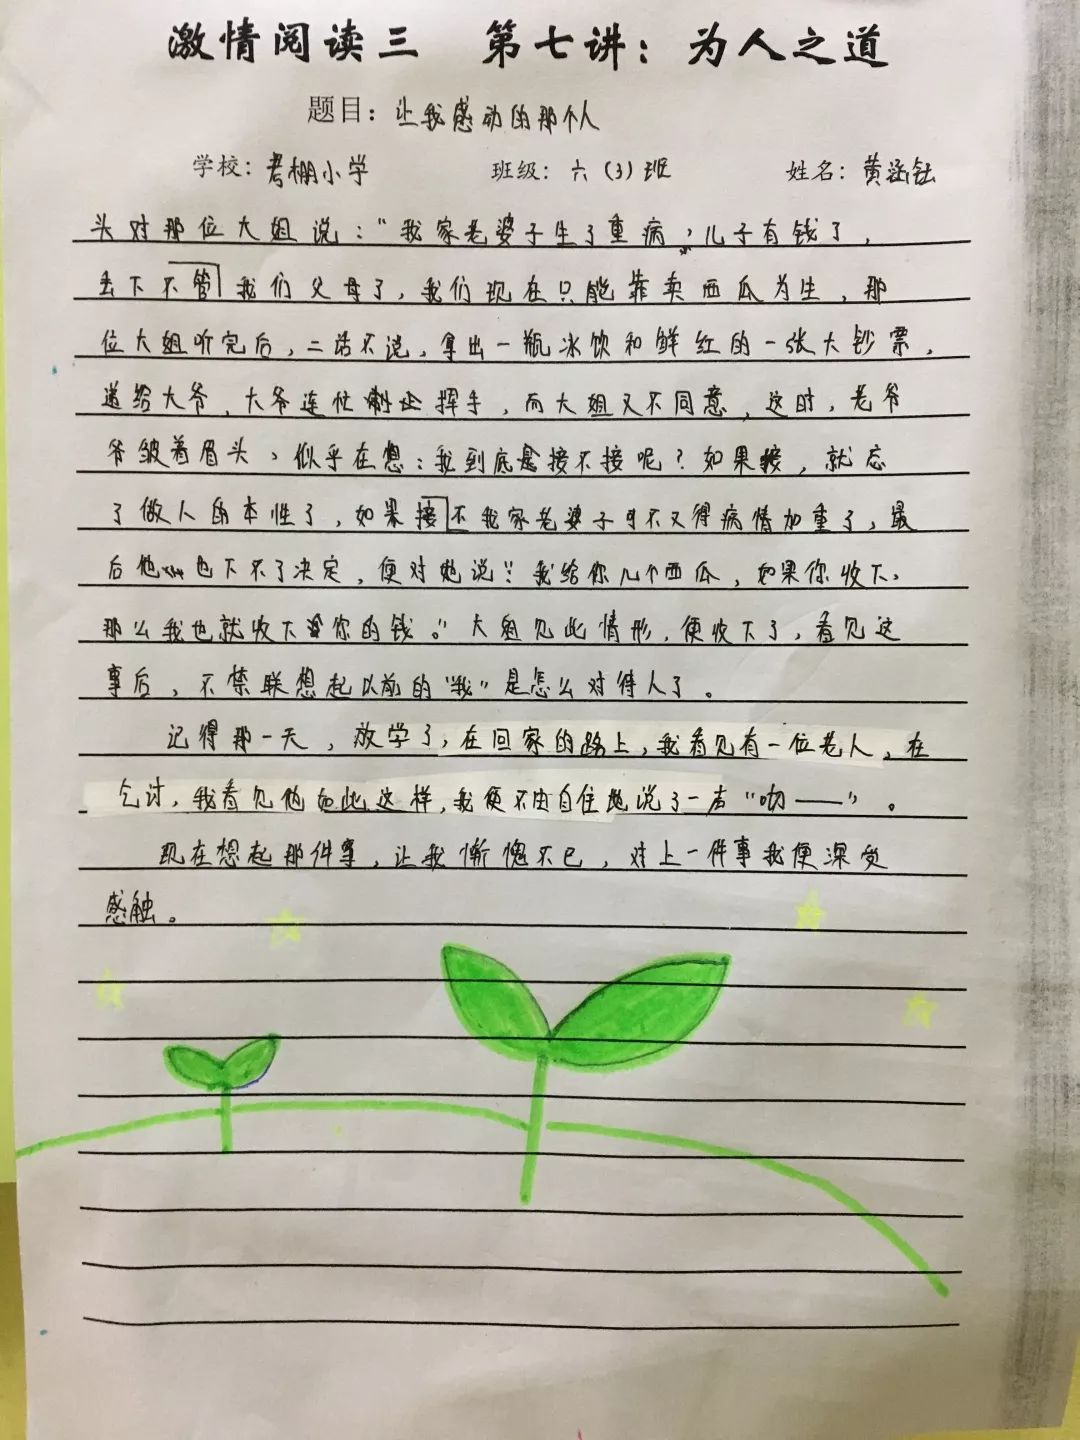 激情阅读三 第七讲：为人之道
题目：让我感动的那个人
学校：考棚小学 班级：六（3）班 姓名：黄涵钰
头对那位大姐说：“我家老婆子生了重病，儿子有钱了，
丢下不管我们父母了，我们现在只能靠卖西瓜为生，那
位大姐听完后，二话不说，拿出一瓶冰饮和鲜红的一张大钞票，
递给大爷，大爷连忙挥手，而大姐又不同意，这时，老爷
爷皱着眉头，似乎在想：我到底是接不接呢？如果接，就忘
了做人的本性了，如果接不我家老婆子可不又得病情加重了，最
后他也下不了决定，便对她说：“我给你几个西瓜，如果你收下，
那么我也就收下你的钱。”大姐见此情形，便收下了，看见这
事后，不禁联想起以前的“我”是怎么对待人了。
记得那一天，放学了，在回家的路上，我看见有一位老人，在
乞讨，我看见他如此这样，我便不由自住地说了一声“哟——”。
现在想起那件事，让我惭愧不已，对上一件事我便深受
感触。